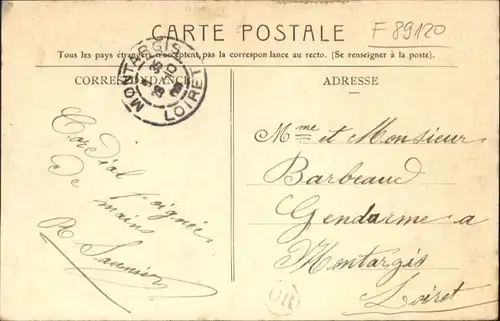 CARTE POSTALE
F 89120
Tous les pays étrangers n'acceptent pas la correspondance au recto. (Se renseigner à la poste).
CORRESPONDANCE
ADRESSE
MONTARGIS
LOIRET
Cordial
Poignée
De mains
Saunier
Mme et Monsieur
Barbeaud
Gendarme a
Montargis
Loiret